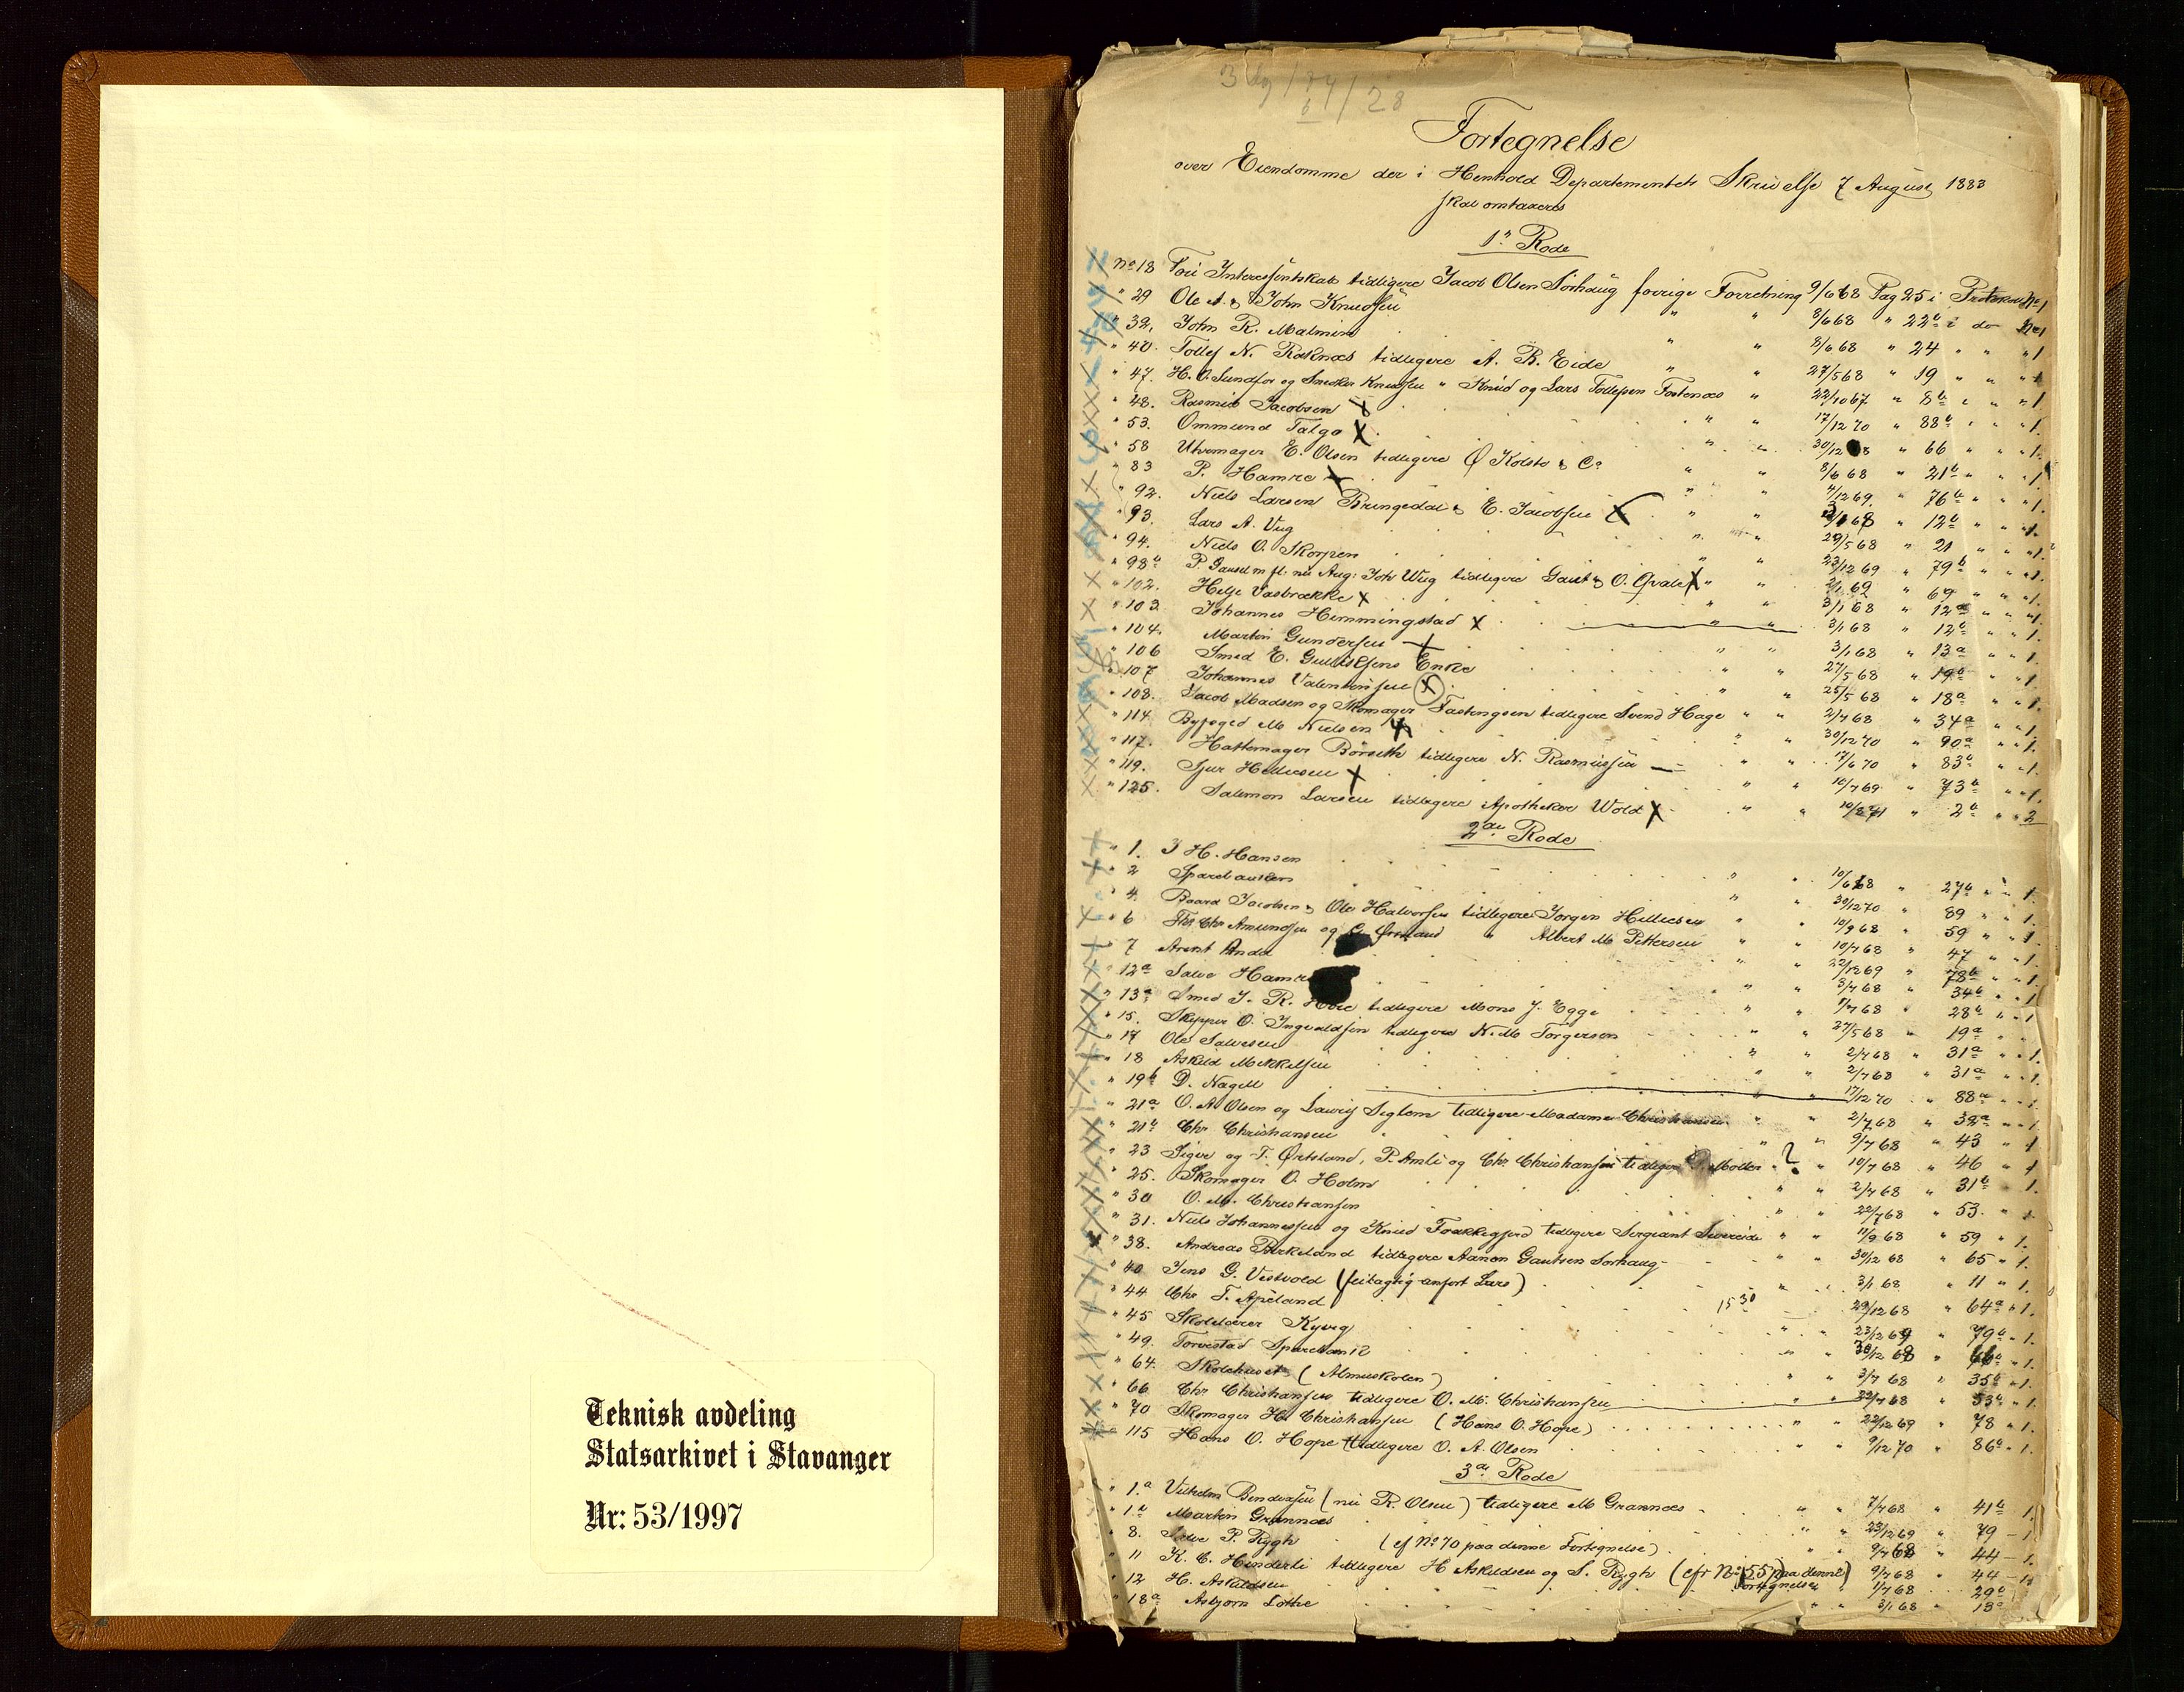 Teknisk avdeling
Statsarkivet i Stavanger
Nr: 53/1997
Fortegnelse
over Eiendomme der i Henhold Departementets Skrivelse 7 August 1883
skal omtaxeres
1n Rode
No 18 Interessentskab tidligere Jacob Olsen Sørhaug forrige Forretning 9/6 68 Pag 25 i Protokol No 1
" 29 Ole A. & John Knudsen " " 8/6 68 " 22b i do No 1
" 32. John R. Malmin " " 8/6 68 " 24 " " " 1
" 40. Tollef N. Røknæs tidligere A. B. Eide " " 27/5 68 " 19 " " " 1
" 47. H. O. Sundfør og Snedker Knudsen " Knud og Lars Tollefsen Fosenæs " 22/10 67 " 8b " " " 1
" 48. Rasmus Jacobsen X " " 17/12 70 " 88b " " " 1.
" 53. Ommund Talgø X " " 30/12 " 66 " " " 1.
" 58 Uhrmager E. Olsen tidligere Ø Kolstø & Co " " 8/6 68 " 21b " " " 1
" 83 P. Hamre X " " /12 69. " 76b " " " 1.
" 92. Niels Larsen Bringedal & E. Jacobsen X " " 3/1 68 " 12b " " " 1.
" 93. Lars A. Vug " " 29/5 68 " 21 " " " 1.
" 94. Niels O. Skorpen " " 23/12 69 " 79b " " " 1.
" 98b P. Gausel m fl. nu Aug: Joh Wug tidligere Gaut & O. Qvale X " " 2/1 69 " 69 " " " 1.
" 102. Helje Vasbrække X 3/1 68 " 12a " " " 1
" 103. Johannes Hemmingstad X " " 3/1 68 " 12b " " 1.
" 104. Martin Gundersen X " " 3/1 68 " 13a " " 1.
" 106 Smed E. Gulliksens Enke " " 27/5 68 " 19b " " 1
" 107 Johannes Valentinsen X " " 25/5 68 " 18a " " 1.
" 108. Jacob Madsen og Skomager Fastingsen tidligere Svend Hage " " 2/7 68 " 34a " " 1.
" 114. Byfoged M. Nielsen X " " 30/12 70 " 90a " " 1.
" 117. Hattemager Børseth tidligere N. Rasmussen " " 17/6 70 " 83b " " 1.
" 119. Sjur Hellesen X " " 10/7 69 " 73b " " 1.
" 125. Salemon Larsen tidligere Apotheker Wold X " " 10/8 71 " 2b " " 2
2den Rode
" 1. J H. Hansen " " 10/6 68 " 27b " " 1.
" 2 Sparebanken " " 30/12 70 " 89 " " 1.
" 4. Baard Jacobsen & Ole Halvorsen tidligere Jørgen Hellesen " " 10/9 68 " 59 " " 1
" 6 Ths Chr Amundsen og Ørstand " Albert M Pettersen " " 10/7 68 " 47 " " 1.
" 7 Arent Anda " " 22/12 69 " 78b " " 1.
" 12a Salve Hamre " " 3/7 68 " 34b " " 1
" 13a Smed J. R. tidligere Mons J. Egge " " 1/7 68 " 28b " " 1
" 15. Skipper O. Ingvaldsen tidligere N. M. Torgersen " " 27/5 68 " 19a " "
" 17 Ole Salvesen " " 2/7 68 " 31a " " 1.
" 18 Askild Mikkelsen " " 2/7 68 " 31a " " 1.
" 19b D. Nagell " " 17/12 70 " 88a " " 1.
" 21a O. A Olsen og Lauritz Seglem tidligere Madame Christiansen " " 2/7 68 " 32a " " 1.
" 21b Chr Christiansen " " 9/7 68 " 43 " 1
" 23 Sigve og T. Ørtsland, P. Amli og Chr. Christiansen tidligere Møller " ? " 10/7 68 " 46 " 1
" 25. Skomager O. Holm " " 2/7 68 " 31b " 1.
" 30 O. M. Christiansen " " 22/7 68 " 53. " 1
" 31. Niels Johannessen og Knud Frakkagjerd tidligere Sergeant Svereide " " 11/9 68 " 59 " 1.
" 38. Andreas Birkeland tidligere Aanon Gautsen Sørhaug " " 30/12 68 " 65 " 1.
" 40 Jens G. Vestvold (feilagtig anført Lars) " " 3/1 68 " 11 " 1.
" 44 Chr T. Apeland 15 30 29/12 68 " 64a " 1.
" 45 Skolelærer Kyvig " " 23/12 69 " 79b " 1.
" 49. Torvestad Sparebank " " 30/12 68 " 66b " 1.
" 64. Skolehuset (Almueskolen) " " 3/7 68 " 35a " 1.
" 66 Chr Christiansen tidligere O. M. Christiansen " " 22/7 68 " 53a " 1.
" 70 Skomager H. Christiansen (Hans O. Hope) " " 22/12 69 " 78 " 1.
" 115 Hans O. Hope tidligere O. A. Olsen " " 9/12 70 " 86b " 1.
3de Rode
" 1.a Vilhelm Bendixsen (nu R. Olsen) tidligere M Grannæs " " 7/7 68 " 41b 1.
" 1.b Martin Grannæs " " 23/12 69 " 79 - 1.
" 8. P. Rygh (cf No 70 paa denne Fortegnelse) " " 9/7 68 " 44 - 1.
" 11 K. C. Hinderli tidligere H Askildsen og S. Rygh (cfr No 55 paa denne Fortegnelse) 9/7 68 " 44 - 1.
" 12 H. Askildsen " " 1/7 68 " 29b
" 18a Asbjørn Lothe " " 3/1 68 " 13a